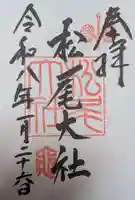 奉拝
松尾大社
令和八年一月二十六日